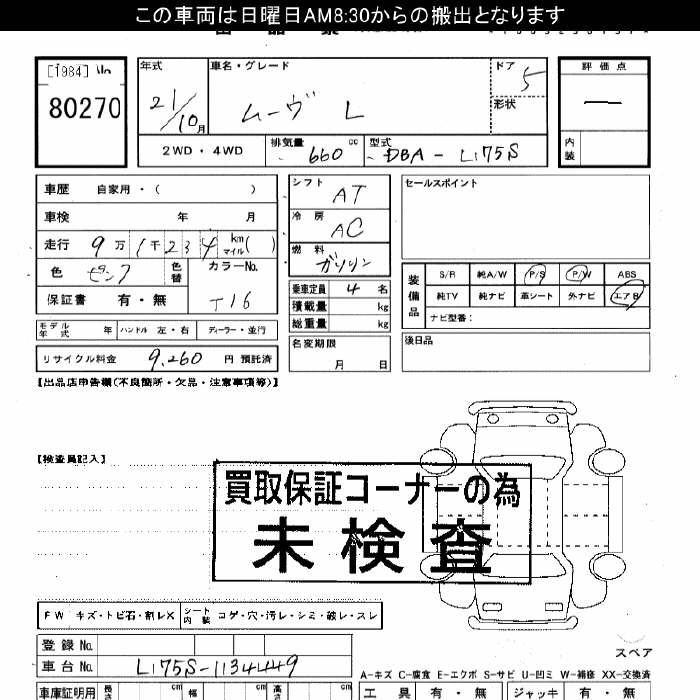 この車両は日曜日AM8:30からの搬出となります
[1984] No
80270
年式
21/10月
車名・グレード
ムーヴ L
ドア
5
形状
評価点
―
内装
2WD・4WD
排気量 660 cc
型式 DBA-L175S
車歴 自家用・( )
車検 年 月
走行 9万1千234 km マイル( )
色
色替
カラーNo.
T16
保証書 有・無
シフト AT
冷房 AC
燃料 ガソリン
乗車定員 4 名
積載量 kg
総重量 kg
名変期限
月 日
セールスポイント
装備品
S/R 純A/W P/S P/W ABS
純TV 純ナビ 革シート 外ナビ エアB
ナビ型番:
後日品
モデル年式 年 ハンドル 左・右 ディーラー・並行
リサイクル料金 9,260 円 預託済
【出品店申告欄(不良箇所・欠品・注意事項等)】
【検査員記入】
買取保証コーナーの為
未検査
FW キズ・トビ石・割レX シート内装 コゲ・穴・汚レ・シミ・破レ・スレ
登録No.
車台No. L175S-1134449
スペア
A-キズ C-腐食 E-エクボ S-サビ U-凹ミ W-補修 XX-交換済
車庫証明用 長さ cm 幅 cm 高さ cm
工具 有・無 ジャッキ 有・無